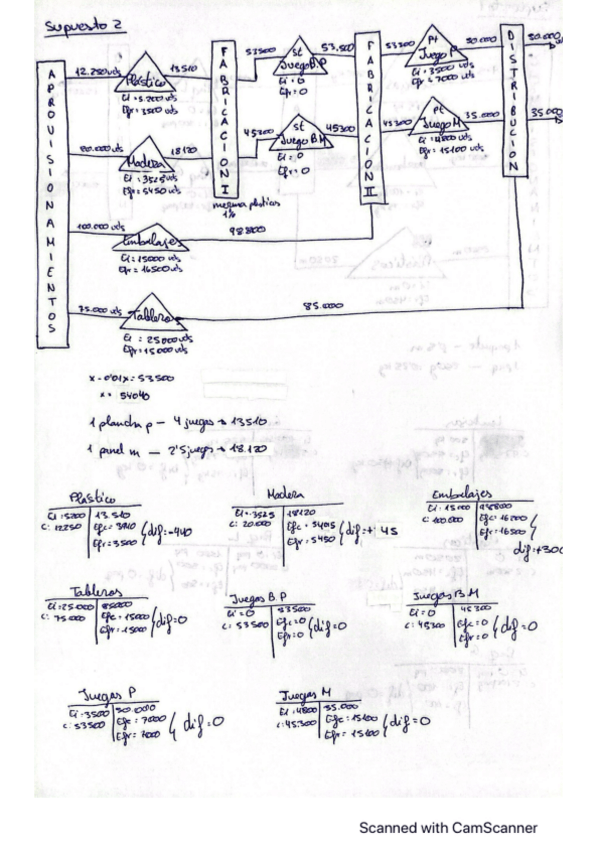 Supuesto 2
APROVISIONAMIENTOS
12.250 uds
Plástico
Ei = 5.200 uds
Efr = 3500 uds
13510
FABRICACION I
merma plásticos
1%
53500
St
Juego B.P
Ei = 0
Efr = 0
53.500
FABRICACION II
53500
Pt
Juego P
Ei = 3500 uds
Efr = 7000 uds
50.000
DISTRIBUCION
50.000
20.000 uds
Madera
Ei = 3525 uds
Efr = 5450 uds
18120
45300
St
Juego B.M
Ei = 0
Efr = 0
45300
45300
Pt
Juego M
Ei = 4800 uds
Efr = 15100 uds
35.000
35.000
100.000 uds
Embalajes
Ei = 15000 uds
Efr = 16500 uds
98800
75.000 uds
Tableros
Ei = 25000 uds
Efr = 15000 uds
85.000
x - 0'01x = 53500
x = 54040
1 plancha p — 4 juegos → 13510
1 panel m — 2'5 juegos → 18.120
Plástico
Ei = 5200
C: 12250
13.510
Efc = 3940
Efr = 3500
dif = -440
Madera
Ei = 3525
C: 20.000
18120
Efc = 5405
Efr = 5450
dif = + 45
Embalajes
Ei: 15000
C: 100.000
98800
Efc = 16200
Efr = 16500
dif +300
Tableros
Ei = 25.000
C: 75.000
85000
Efc = 15000
Efr = 15000
dif = 0
Juegos B.P
Ei = 0
C: 53500
53500
Efc = 0
Efr = 0
dif = 0
Juegos B.M
Ei = 0
C: 45300
45300
Efc = 0
Efr = 0
dif = 0
Juegos P
Ei = 3500
C: 53500
50.000
Efc = 7000
Efr = 7000
dif = 0
Juegos M
Ei = 4800
C: 45.300
35.000
Efc = 15100
Efr = 15100
dif = 0
Scanned with CamScanner